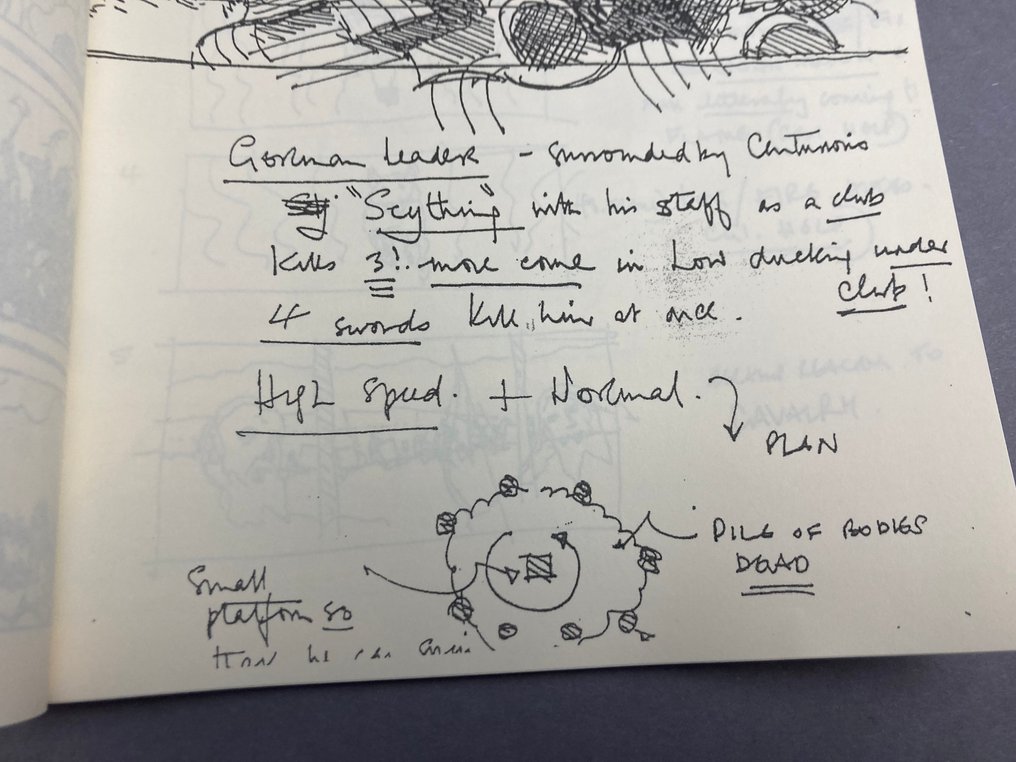 German Leader - surrounded by Centurions
"Scything" with his staff as a club
Kills 3! more come in Low ducking under
club!
4 swords Kill him at once.
High Speed. + Normal.
PLAN
PILE OF BODIES
DEAD
Small
platform so
he can